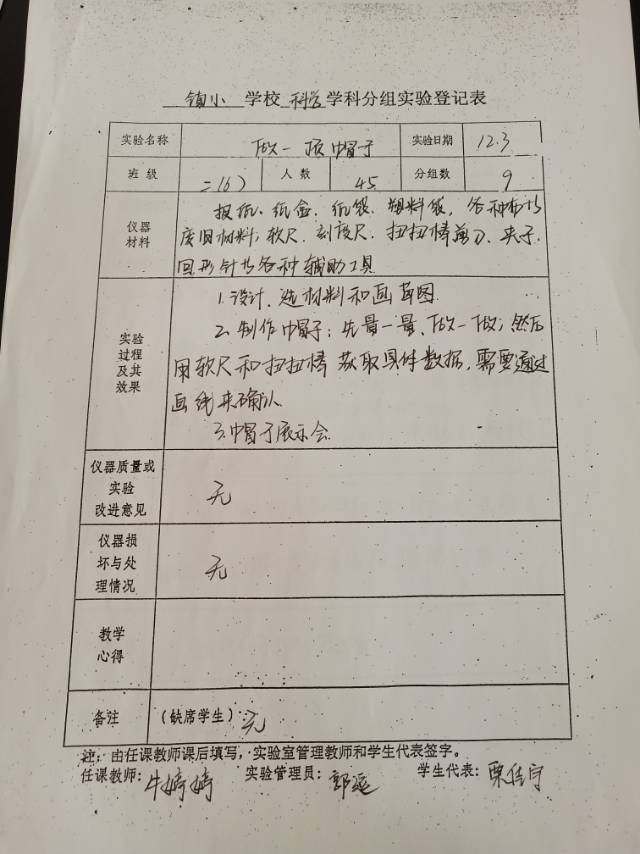 镇小 学校 科学 学科分组实验登记表
实验名称 做一顶帽子 实验日期 12.3
班 级 二(6) 人 数 45 分组数 9
仪器材料 报纸、纸盒、纸袋、塑料袋，各种布料
废旧材料；软尺、刻度尺、扭扭棒剪刀、夹子
回形针等各种辅助工具
实验过程及其效果 1.设计、选材料和画草图
2.制作帽子：先量一量、做一做；然后
用软尺和扭扭棒获取具体数据，需要通过
画线来确认
3.帽子展示会
仪器质量或实验改进意见 无
仪器损坏与处理情况 无
教学心得
备注 (缺席学生)：无
注：由任课教师课后填写，实验室管理教师和学生代表签字。
任课教师：牛婷婷 实验管理员：郭 学生代表：栗佳宇